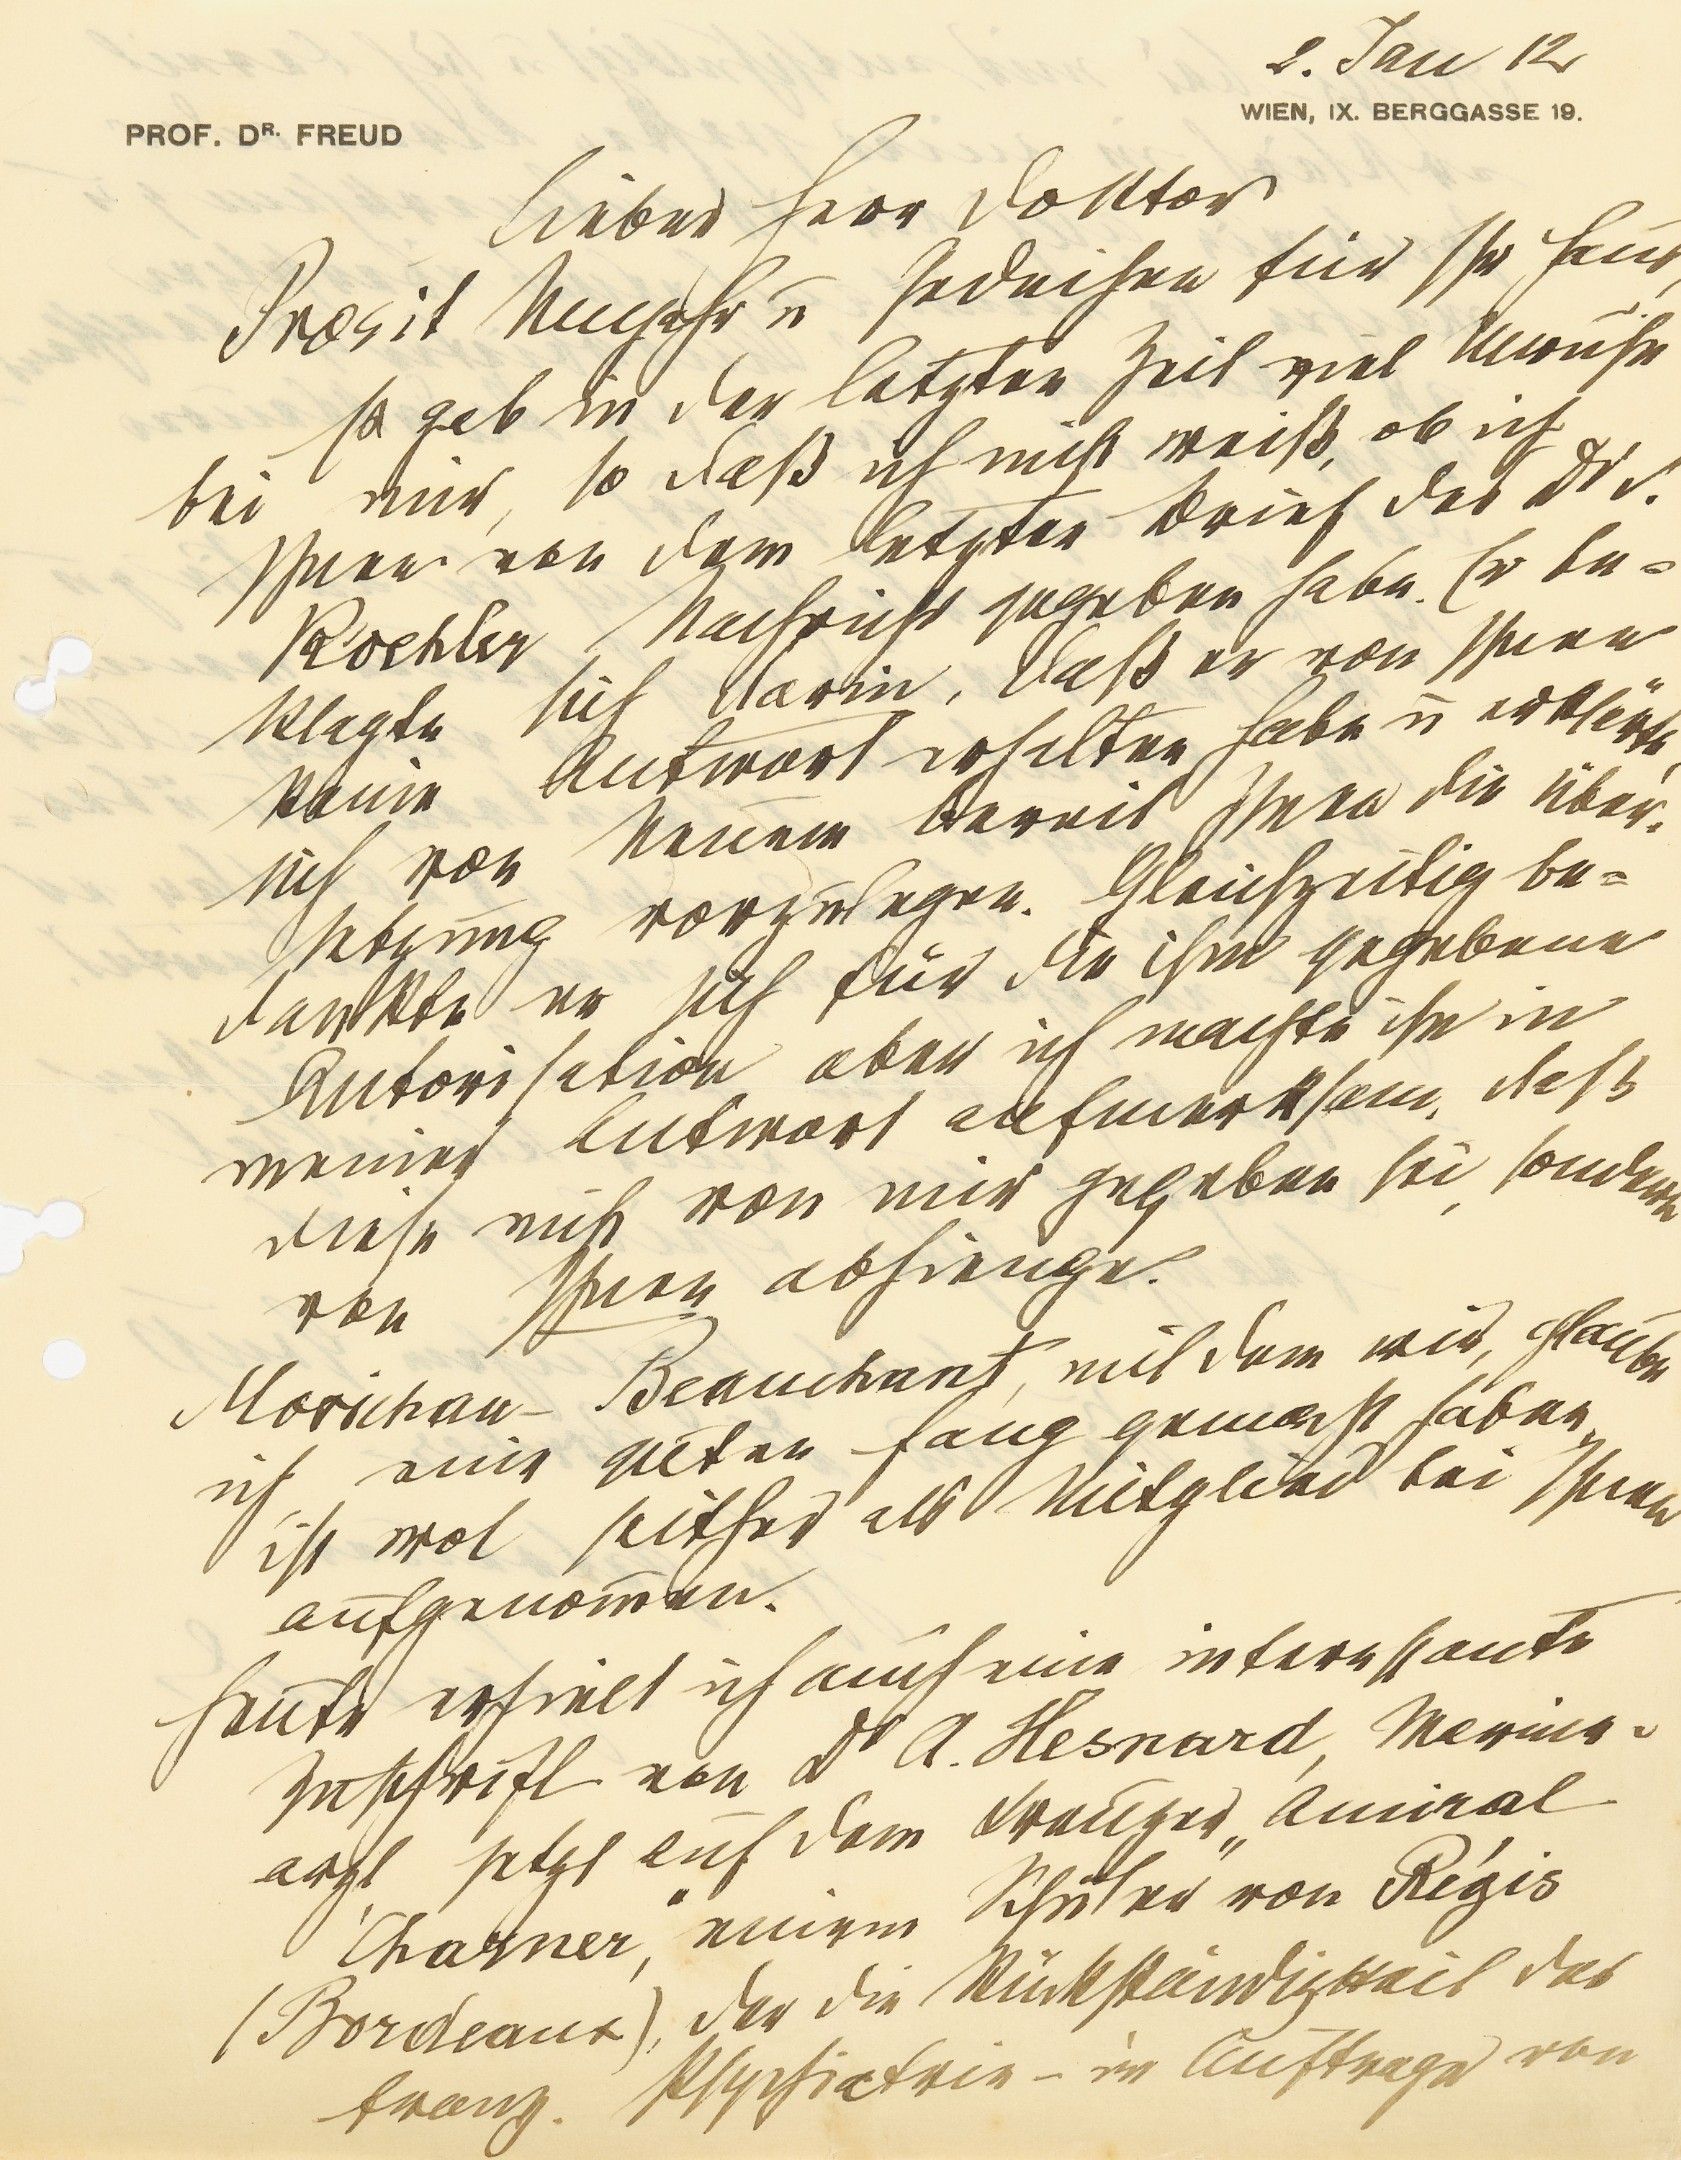 2. Jan 12
WIEN, IX. BERGGASSE 19.
PROF. DR. FREUD
Lieber Herr Doktor
Prosit Neujahr u Gedeihen für Ihr Haus,
Es gab in der letzten Zeit viel Unruhe
bei mir, so daß ich nicht weiß, ob ich
Ihnen von dem letzten Brief des Dr
Koehler Nachricht gegeben habe. Er be=
klagte sich darin, daß er von Ihnen
keine Antwort erhalten habe u erklärte
sich von Neuem bereit Ihnen die Über-
setzung vorzulegen. Gleichzeitig be=
dankte er sich für die ihm gegebene
Autorisation aber ich machte ihn in
meiner Antwort aufmerksam, daß
diese nicht von mir gegeben sei, sondern
von Ihnen abhienge.
Morichau-Beauchant, mit dem wir, glaube
ich einen guten Fang gemacht haben,
ist wol seither als Mitglied bei Ihnen
aufgenomen.
Heute erhielt ich auch eine interessante
Zuschrift von Dr A. Hesnard, Marine-
arzt jetzt auf dem Kreuzer „Amiral
Charner", einem Schüler von Régis
(Bordeaux), der die Rückständigkeit der
franz. Psychiatrie – im Auftrage von